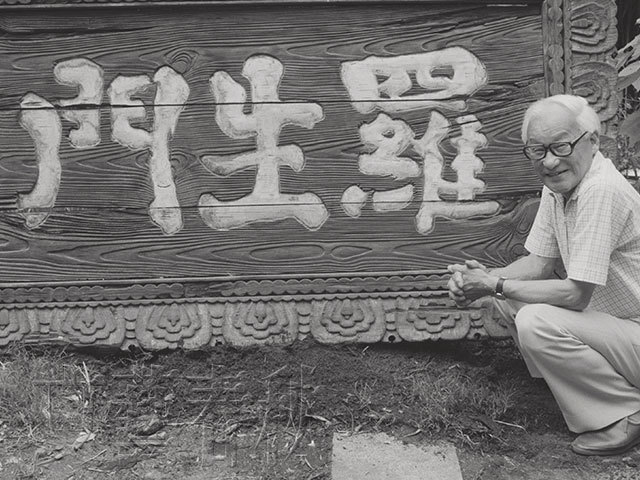 羅生門